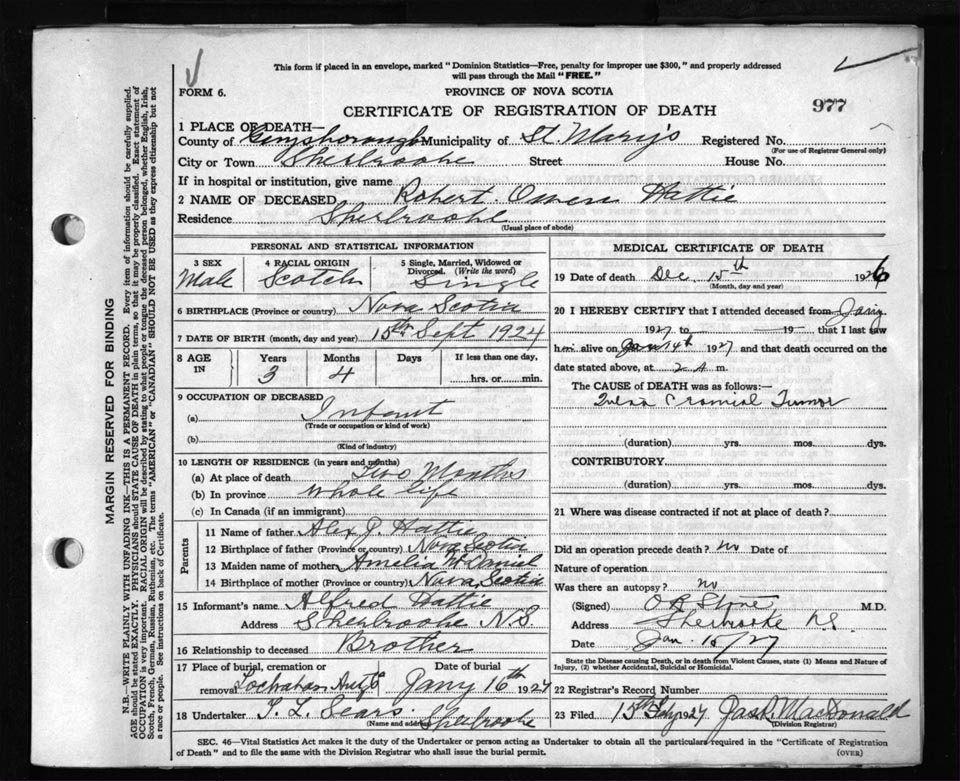 This form if placed in an envelope, marked "Dominion Statistics—Free, penalty for improper use $300," and properly addressed
will pass through the Mail "FREE."
FORM 6.
PROVINCE OF NOVA SCOTIA
CERTIFICATE OF REGISTRATION OF DEATH
977
1 PLACE OF DEATH—
County of Guysborough Municipality of St Mary's Registered No.
(For use of Registrar General only)
City or Town Sherbrooke Street House No.
If in hospital or institution, give name
2 NAME OF DECEASED Robert Owen Hattie
Residence Sherbrooke
(Usual place of abode)
PERSONAL AND STATISTICAL INFORMATION
3 SEX
Male
4 RACIAL ORIGIN
Scotch
5 Single, Married, Widowed or Divorced. (Write the word)
Single
6 BIRTHPLACE (Province or country) Nova Scotia
7 DATE OF BIRTH (month, day and year) 15th Sept 1924
8 AGE IN
Years Months Days If less than one day,
3 4 hrs. or min.
9 OCCUPATION OF DECEASED
(a) Infant
(Trade or occupation or kind of work)
(b)
(Kind of industry)
10 LENGTH OF RESIDENCE (in years and months)
(a) At place of death Two Months
(b) In province Whole life
(c) In Canada (if an immigrant)
Parents
11 Name of father Alex J. Hattie
12 Birthplace of father (Province or country) Nova Scotia
13 Maiden name of mother Amelia
14 Birthplace of mother (Province or country) Nova Scotia
15 Informant's name Alfred Hattie
Address Sherbrooke N.S.
16 Relationship to deceased Brother
17 Place of burial, cremation or removal Lochaber
Date of burial
Jany 16th 1927
18 Undertaker T. L. Sears Sherbrooke
(Name and address)
MEDICAL CERTIFICATE OF DEATH
19 Date of death Dec 15th 1926
(Month, day and year)
20 I HEREBY CERTIFY that I attended deceased from Jany
1927 to 19 , that I last saw
him alive on Jan 14th 1927 and that death occurred on the
date stated above, at 2 A m.
The CAUSE of DEATH was as follows:—
Cranial Tumor
(duration) yrs. mos. dys.
CONTRIBUTORY.
(duration) yrs. mos. dys.
21 Where was disease contracted if not at place of death?
Did an operation precede death? no Date of
Nature of operation
Was there an autopsy? no
(Signed) M.D.
Address Sherbrooke NS
Date Jan. 15/27
State the Disease causing Death, or in death from Violent Causes, state (1) Means and Nature of
Injury, (2) whether Accidental, Suicidal or Homicidal.
22 Registrar's Record Number
23 Filed 15th 1927 Jas. P. MacDonald
(Division Registrar)
SEC. 46—Vital Statistics Act makes it the duty of the Undertaker or person acting as Undertaker to obtain all the particulars required in the "Certificate of Registration
of Death" and to file the same with the Division Registrar who shall issue the burial permit. (OVER)
MARGIN RESERVED FOR BINDING
N.B.—WRITE PLAINLY WITH UNFADING INK—THIS IS A PERMANENT RECORD. Every item of information should be carefully supplied.
AGE should be stated EXACTLY. PHYSICIANS should STATE CAUSE OF DEATH in plain terms, so that it may be properly classified. Exact statement of
OCCUPATION is very important. RACIAL ORIGIN will be described by stating to what people or tongue the deceased person belonged, whether English, Irish,
Scotch, French, German, Russian, Ruthenian, etc. The terms "AMERICAN" or "CANADIAN" SHOULD NOT BE USED as they express citizenship but not
a race or people. See instructions on back of Certificate.